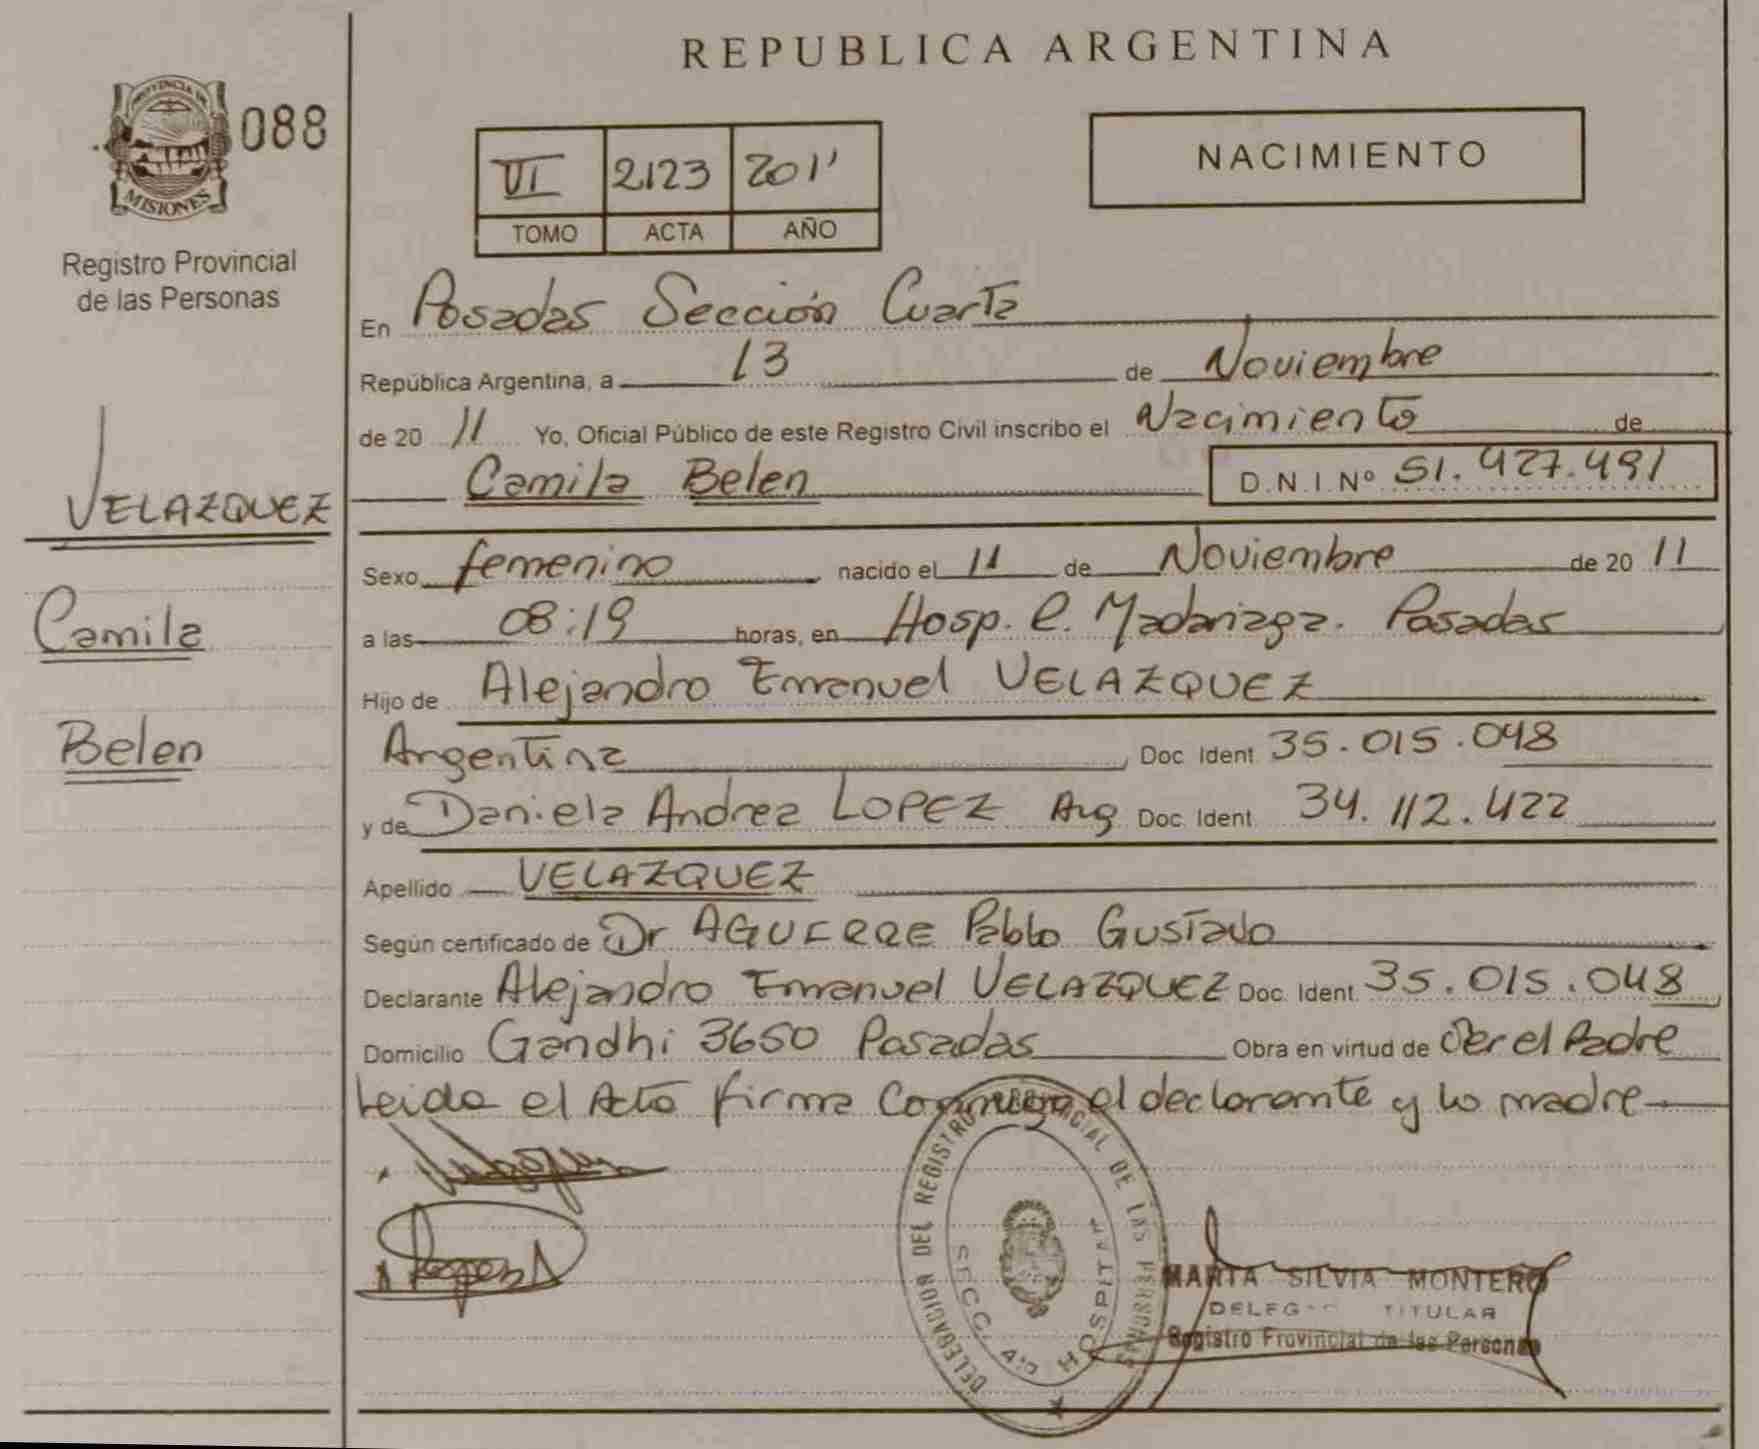 REPUBLICA ARGENTINA
PROVINCIA DE
MISIONES
088
Registro Provincial
de las Personas
VI 2123 2011
TOMO ACTA AÑO
NACIMIENTO
En Posadas Sección Cuarta
República Argentina, a 13 de Noviembre
de 20 11 Yo, Oficial Público de este Registro Civil inscribo el Nacimiento de
Camila Belen D.N.I.Nº 51.427.491
VELAZQUEZ
Camila
Belen
Sexo femenino nacido el 11 de Noviembre de 20 11
a las 08:19 horas, en Hosp. R. Madariaga. Posadas
Hijo de Alejandro Emanuel VELAZQUEZ
Argentina Doc. Ident. 35.015.048
y de Daniela Andrea LOPEZ Arg Doc. Ident. 34.112.422
Apellido VELAZQUEZ
Según certificado de Dr AGUERRE Pablo Gustavo
Declarante Alejandro Emanuel VELAZQUEZ Doc. Ident. 35.015.048
Domicilio Gandhi 3650 Posadas Obra en virtud de Ser el Padre
Leida el Acta firma Conmigo el declarante y la madre
DELEGACION DEL REGISTRO PROVINCIAL DE LAS PERSONAS
SECC. 4ta HOSPITAL
MARTA SILVIA MONTERO
TITULAR
Registro Provincial de las Personas